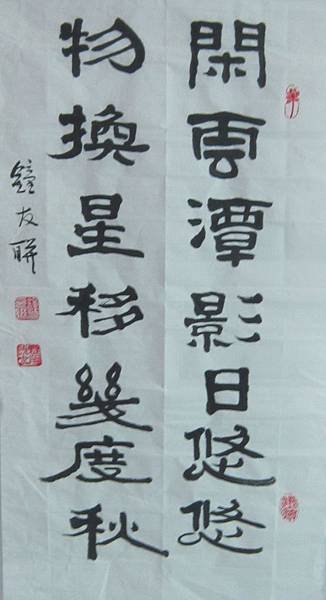 閑雲潭影日悠悠
物換星移幾度秋
鐘友聯